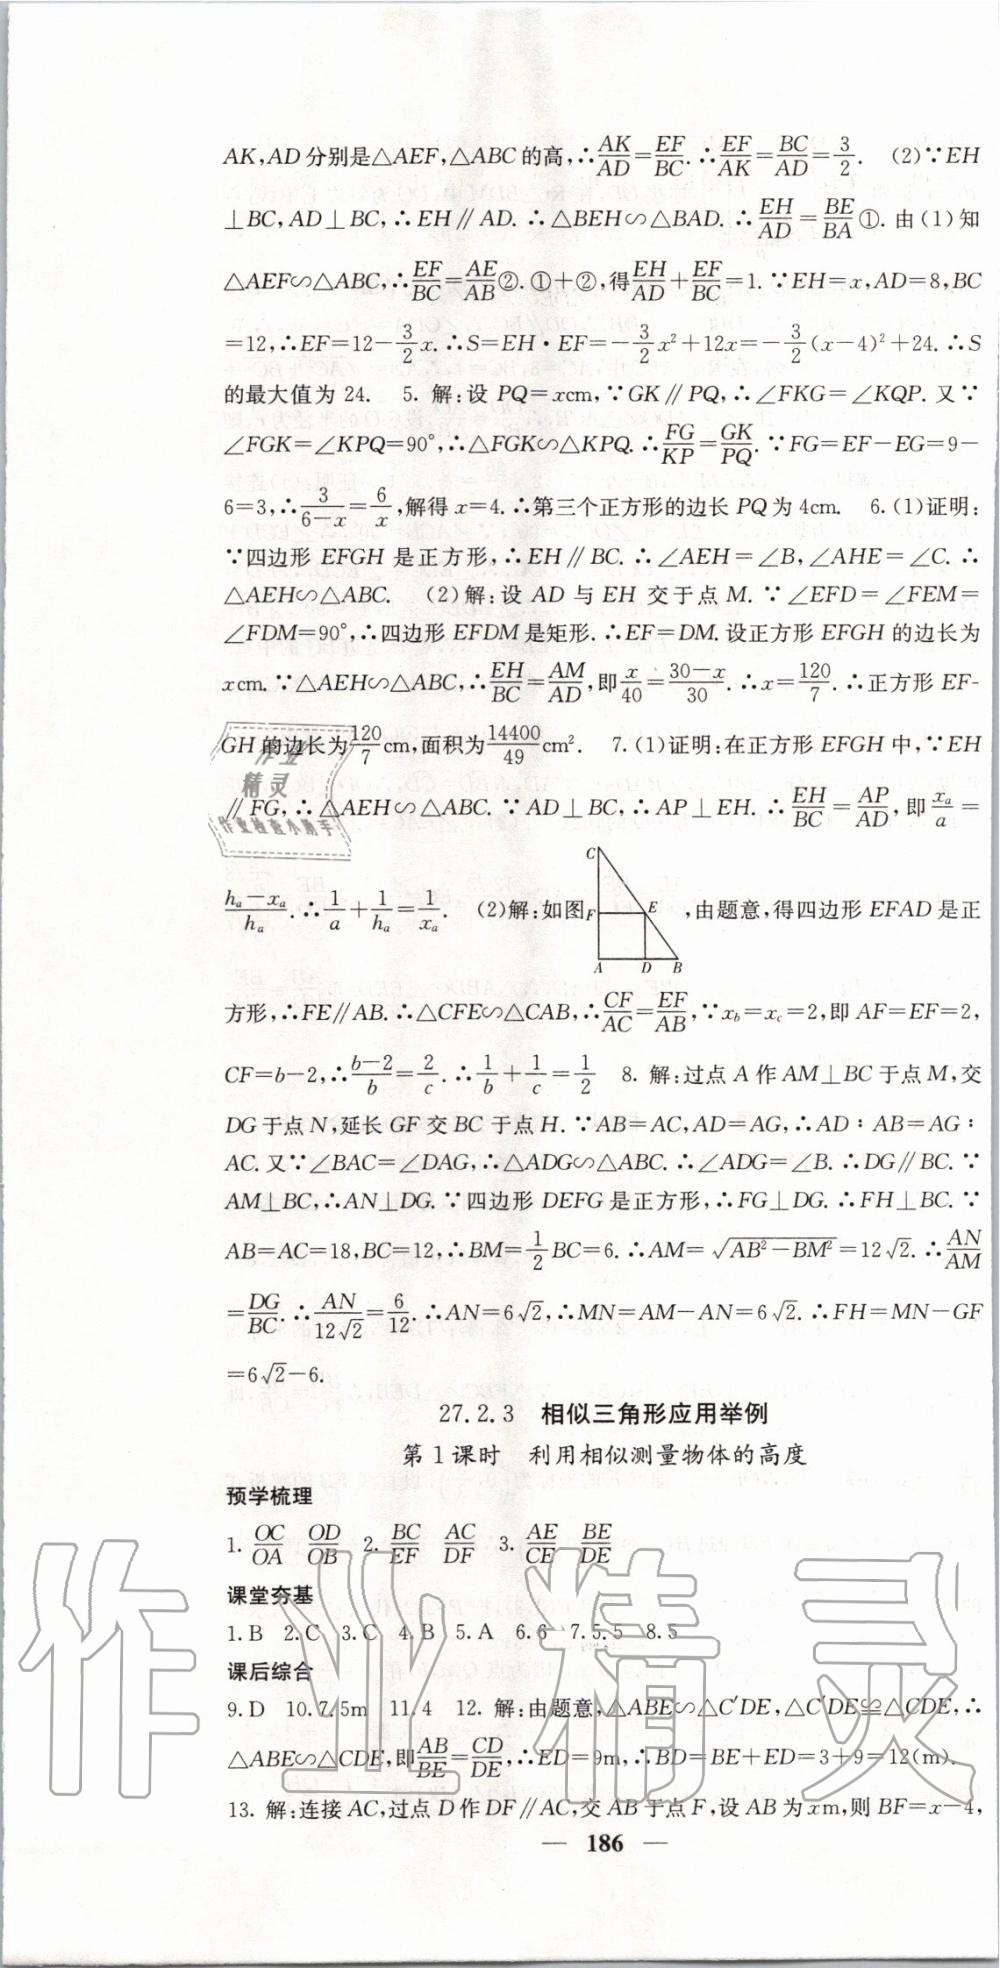 AK,AD分别是△AEF,△ABC的高,∴AK/AD=EF/BC.∴EF/AK=BC/AD=3/2. (2)∵EH
⊥BC,AD⊥BC,∴EH∥AD.∴△BEH∽△BAD.∴EH/AD=BE/BA①.由(1)知
△AEF∽△ABC,∴EF/BC=AE/AB②.①+②,得EH/AD+EF/BC=1.∵EH=x,AD=8,BC
=12,∴EF=12-3/2x.∴S=EH·EF=-3/2x²+12x=-3/2(x-4)²+24.∴S
的最大值为24. 5. 解:设PQ=xcm,∵GK∥PQ,∴∠FKG=∠KQP.又∵
∠FGK=∠KPQ=90°,∴△FGK∽△KPQ.∴FG/KP=GK/PQ.∵FG=EF-EG=9-
6=3,∴3/(6-x)=6/x,解得x=4.∴第三个正方形的边长PQ为4cm. 6.(1)证明:
∵四边形EFGH是正方形,∴EH∥BC.∴∠AEH=∠B,∠AHE=∠C.∴
△AEH∽△ABC. (2)解:设AD与EH交于点M.∵∠EFD=∠FEM=
∠FDM=90°,∴四边形EFDM是矩形.∴EF=DM.设正方形EFGH的边长为
xcm.∵△AEH∽△ABC,∴EH/BC=AM/AD,即x/40=(30-x)/30.∴x=120/7.∴正方形EF-
GH的边长为120/7cm,面积为14400/49cm². 7.(1)证明:在正方形EFGH中,∵EH
∥FG,∴△AEH∽△ABC.∵AD⊥BC,∴AP⊥EH.∴EH/BC=AP/AD,即xₐ/a=
(hₐ-xₐ)/hₐ.∴1/a+1/hₐ=1/xₐ. (2)解:如图,由题意,得四边形EFAD是正
C
F E
A D B
方形,∴FE∥AB.∴△CFE∽△CAB,∴CF/AC=EF/AB,∵x_b=x_c=2,即AF=EF=2,
CF=b-2,∴(b-2)/b=2/c.∴1/b+1/c=1/2 8. 解:过点A作AM⊥BC于点M,交
DG于点N,延长GF交BC于点H.∵AB=AC,AD=AG,∴AD∶AB=AG∶
AC.又∵∠BAC=∠DAG,∴△ADG∽△ABC.∴∠ADG=∠B.∴DG∥BC.∵
AM⊥BC,∴AN⊥DG.∵四边形DEFG是正方形,∴FG⊥DG.∴FH⊥BC.∵
AB=AC=18,BC=12,∴BM=1/2BC=6.∴AM=√(AB²-BM²)=12√2.∴AN/AM
=DG/BC.∴AN/12√2=6/12.∴AN=6√2,∴MN=AM-AN=6√2.∴FH=MN-GF
=6√2-6.
27.2.3 相似三角形应用举例
第1课时 利用相似测量物体的高度
预学梳理
1. OC/OA OD/OB 2. BC/EF AC/DF 3. AE/CE BE/DE
课堂夯基
1.B 2.C 3.C 4.B 5.A 6.6 7.5.5 8.5
课后综合
9.D 10.7.5m 11.4 12. 解:由题意,△ABE∽△C′DE,△C′DE≌△CDE,∴
△ABE∽△CDE,即AB/BE=CD/DE,∴ED=9m,∴BD=BE+ED=3+9=12(m).
13. 解:连接AC,过点D作DF∥AC,交AB于点F,设AB为xm,则BF=x-4,
— 186 —
作业精灵
作业
精灵
作业检查小助手